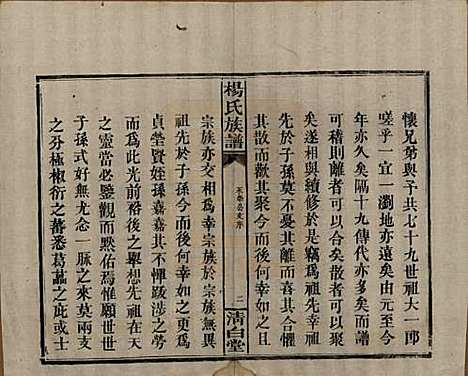 懷兄弟與予共七十九世祖大一郎
嗟乎一宜一瀏地亦遠矣而一明一清
年亦久矣隔十九傳代亦多矣
可稽則離者可以合矣散者可以聚
矣遂相與續修於是竊為祖先幸祖
先於子孫莫不憂其離而欲其合憂
其散而歡其聚今而後何幸如之以
楊氏族譜
二
清白堂
宗族亦交相爲幸宗族於宗族無異
祖先於子孫今而後何幸如之而
貞瑩賢姪孫嘉嘉其不憚跋涉之勞
而爲此光前裕後之舉想先祖在天
之靈當亦必鑒觀而默佑焉惟願世世
子孫式好無尤念一脉之來莫兩支
之分極椒衍之蕃悉葛藟之庇或士